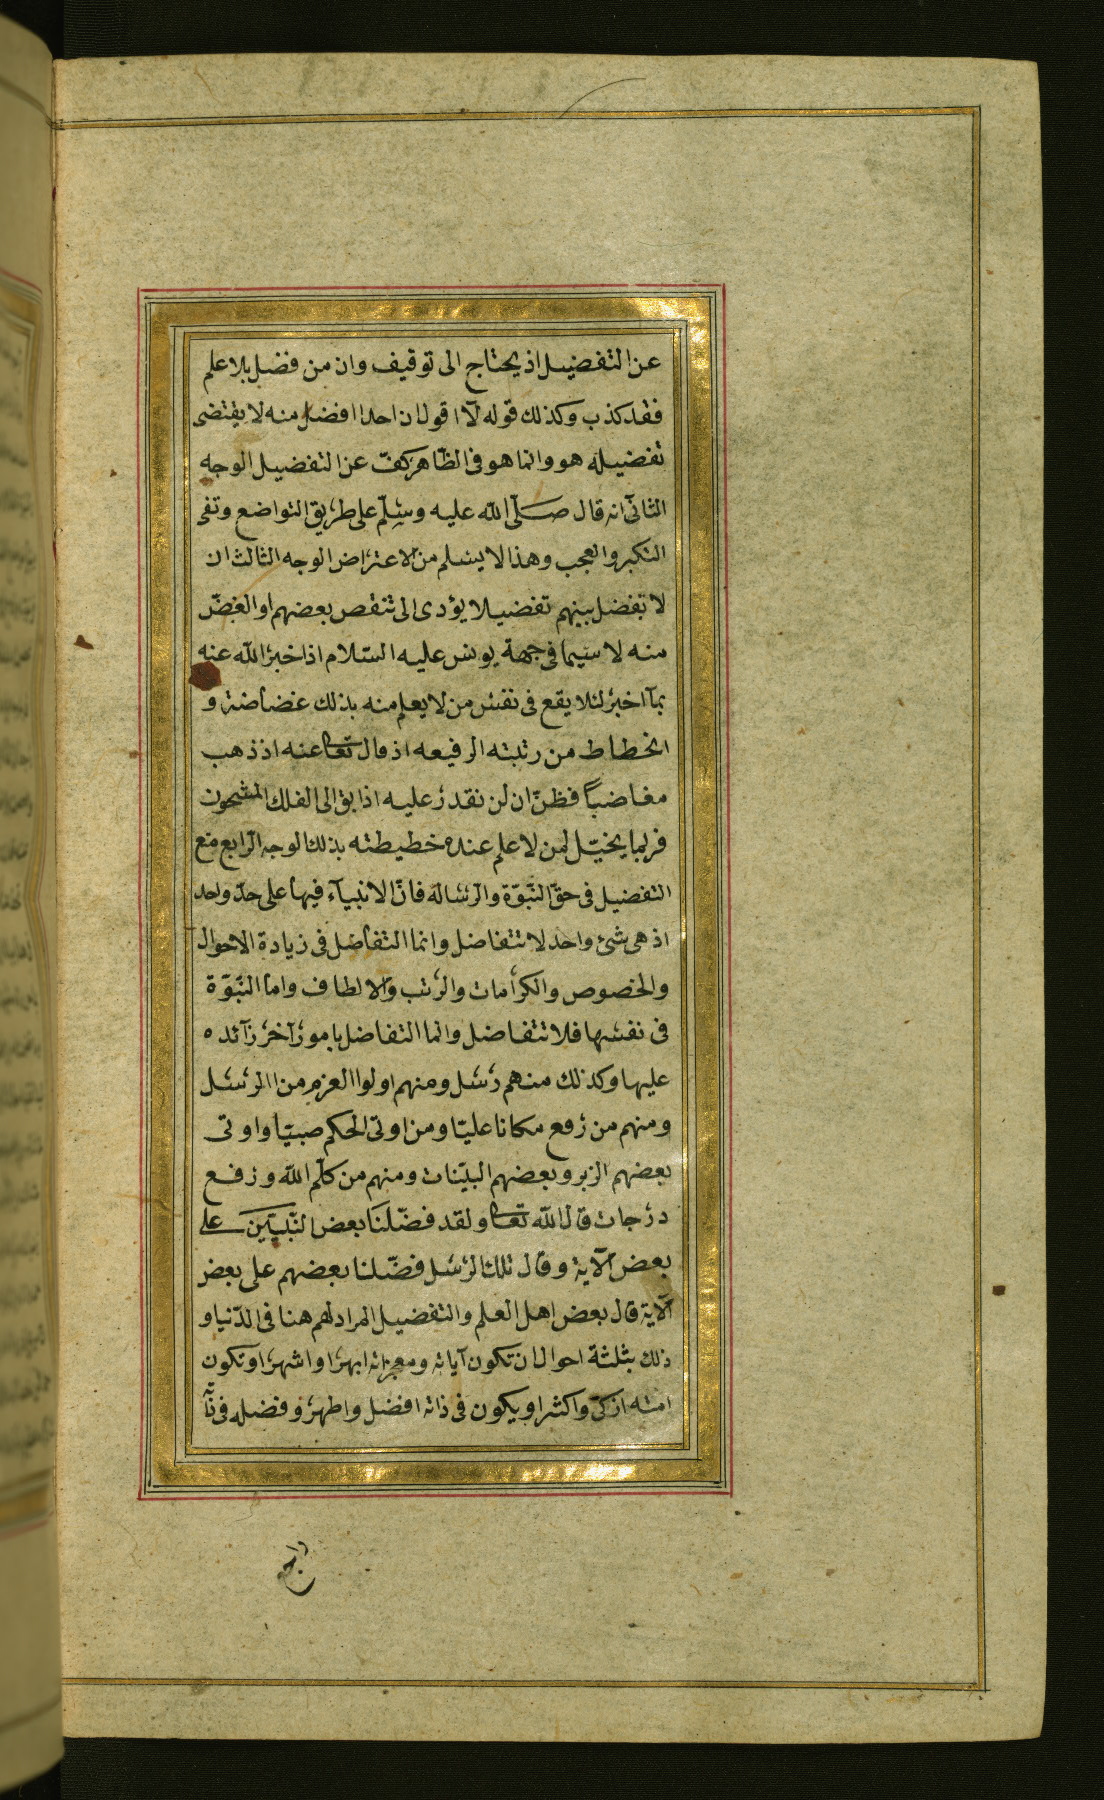 عن التفضيل اذ يحتاج الى توقيف وان من فضل بلا علم
فقد كذب وكذلك قوله لا اقول ان احدا افضل منه لا يقتضى
تفضيله هو وانما هو فى الظاهر كفّ عن التفضيل الوجه
الثانى انه قال صلّى الله عليه وسلّم على طريق التواضع ونفى
التكبر والعجب وهذا لا يسلم من الاعتراض الوجه الثالث ان
لا تفضل بينهم تفضيلا يؤدى الى تنقص بعضهم او الغضّ
منه لا سيما فى جهة يونس عليه السّلام اذ اخبر الله عنه
بما اخبر لئلا يقع فى نفس من لا يعلم منه بذلك غضاضة و
انحطاط من رتبته الرفيعه اذ قال تعا عنه اذ ذهب
مغاضباً فظنّ ان لن نقدر عليه اذ ابق الى الفلك المشحون
فربما يخيّل لمن لا علم عنده حطيطته بذلك الوجه الرابع منع
التفضيل فى حقّ النّبوّة والرسالة فانّ الانبيآء فيها على حدّ واحد
اذ هى شئ واحد لا تتفاضل وانما التفاضل فى زيادة الاحوال
والخصوص والكرامات والرتب والالطاف واما النّبوّة
فى نفسها فلا تتفاضل وانما التفاضل بامور آخر زآئده
عليها وكذلك منهم رسل ومنهم اولوا العزم من الرسل
ومنهم من رفع مكانا عليّا ومن اوتى الحكم صبيّا واوتى
بعضهم الزبر وبعضهم البيّنات ومنهم من كلّم الله ورفع
درجات قال الله تعا ولقد فضّلنا بعض النّبيّين على
بعض الآية وقال تلك الرسل فضّلنا بعضهم على بعض
الآية قال بعض اهل العلم والتفضيل المراد لهم هنا فى الدّنيا و
ذلك بثلثة احوال ان تكون آياته ومعجزاته ابهر او اشهر او تكون
امته ازكى واكثر او يكون فى ذاته افضل واطهر وفضله فى ذاته
راجع